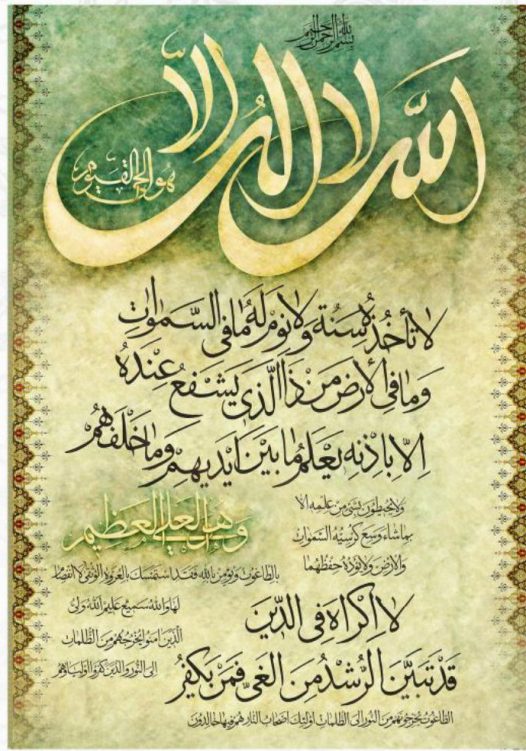 بسم الله الرحمن الرحیم
الله لا اله الا
هو الحی القیوم
لا تأخذه سنة ولا نوم له ما فی السموات
وما فی الأرض من ذا الذی یشفع عنده
الا باذنه یعلم ما بین ایدیهم وما خلفهم
ولا یحیطون بشئ من علمه الا
بما شاء وسع کرسیه السموات
والارض ولا یؤده حفظهما
وهو العلی العظیم
لا اکراه فی الدین
قد تبین الرشد من الغی فمن یکفر
بالطاغوت ویؤمن بالله فقد استمسک بالعروة الوثقی لا انفصام
لها والله سمیع علیم الله ولی
الذین امنوا یخرجهم من الظلمات
الی النور والذین کفروا اولیاؤهم
الطاغوت یخرجونهم من النور الی الظلمات اولئک اصحاب النار هم فیها خالدون